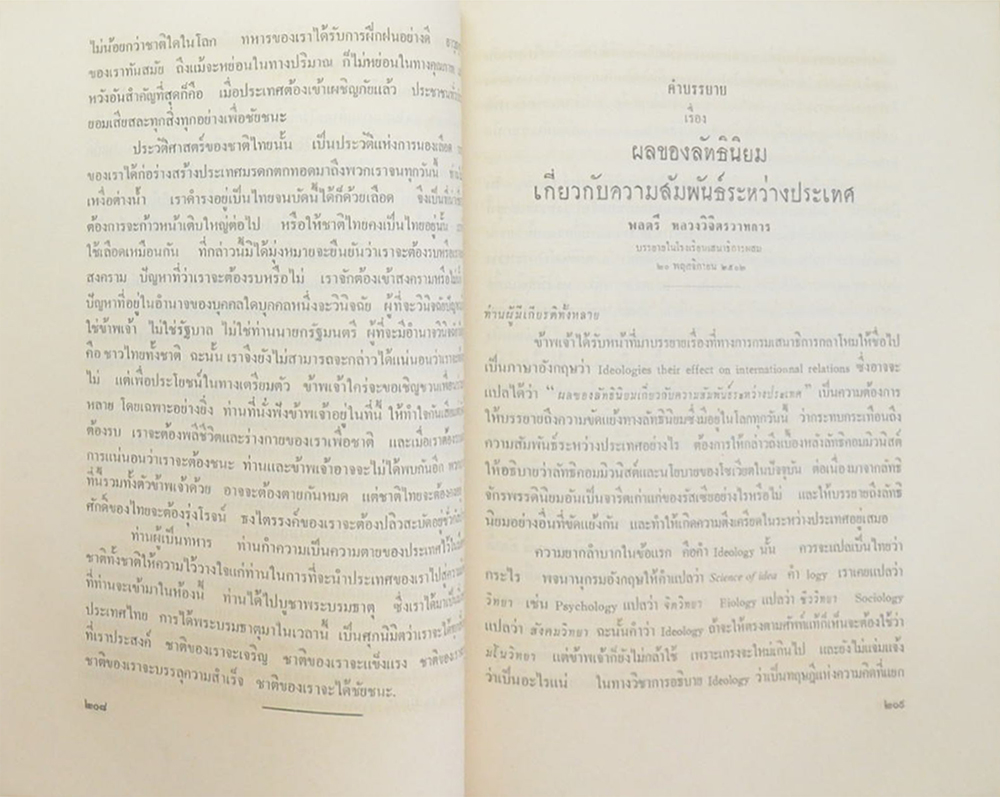 ไม่น้อยกว่าชาติใดในโลก ทหารของเราได้รับการฝึกฝนอย่างดี
ของเราทันสมัย ถึงแม้จะหย่อนในทางปริมาณ ก็ไม่หย่อนในทางคุณภาพ
หวังอันสำคัญที่สุดก็คือ เมื่อประเทศต้องเข้าเผชิญภัยแล้ว
ยอมเสียสละทุกสิ่งทุกอย่างเพื่อชัยชนะ
ประวัติศาสตร์ของชาติไทยนั้น เป็นประวัติแห่งการนองเลือด
ของเราได้ก่อร่างสร้างประเทศมรดกตกทอดมาถึงพวกเราจนทุกวันนี้
เหงื่อต่างน้ำ เราดำรงอยู่เป็นไทยจนบัดนี้ได้ก็ด้วยเลือด
ต้องการจะก้าวหน้าเติบใหญ่ต่อไป หรือให้ชาติไทยคงเป็นไทยอยู่นั้น
ใช้เลือดเหมือนกัน ที่กล่าวนี้มิได้มุ่งหมายจะยืนยันว่าเราจะต้องรบหรือ
สงคราม ปัญหาที่ว่าเราจะต้องรบหรือไม่ เราจักต้องเข้าสงครามหรือไม่
ปัญหาที่อยู่ในอำนาจของบุคคลใดบุคคลหนึ่งจะวินิจฉัย ผู้ที่จะวินิจฉัย
ใช่ข้าพเจ้า ไม่ใช่รัฐบาล ไม่ใช่ท่านนายกรัฐมนตรี ผู้ที่จะมีอำนาจวินิจฉัย
คือ ชาวไทยทั้งชาติ ฉะนั้น เราจึงยังไม่สามารถจะกล่าวได้แน่นอนว่าเราจะ
ไม่ แต่เพื่อประโยชน์ในทางเตรียมตัว ข้าพเจ้าใคร่จะขอเชิญชวนเพื่อน
หลาย โดยเฉพาะอย่างยิ่ง ท่านที่นั่งฟังข้าพเจ้าอยู่ในที่นี้ ให้ทำใจกัน
ต้องรบ เราจะต้องพลีชีวิตและร่างกายของเราเพื่อชาติ และเมื่อเราต้อง
การแน่นอนว่าเราจะต้องชนะ ท่านและข้าพเจ้าอาจจะไม่ได้พบกันอีก
ที่นี้รวมทั้งตัวข้าพเจ้าด้วย อาจจะต้องตายกันหมด แต่ชาติไทยจะต้อง
ศักดิ์ของไทยจะต้องรุ่งโรจน์ ธงไตรรงค์ของเราจะต้องปลิวสะบัดอยู่
ท่านผู้เป็นทหาร ท่านกำความเป็นความตายของประเทศไว้ใน
ชาติทั้งชาติให้ความไว้วางใจแก่ท่านในการที่จะนำประเทศของเราไปสู่
ที่ท่านจะเข้ามาในห้องนี้ ท่านได้ไปบูชาพระบรมธาตุ ซึ่งเราได้มา
ประเทศไทย การได้พระบรมธาตุมาในเวลานี้ เป็นศุภนิมิตว่าเราจะได้
ที่เราประสงค์ ชาติของเราจะเจริญ ชาติของเราจะแข็งแรง ชาติของเรา
ชาติของเราจะบรรลุความสำเร็จ ชาติของเราจะได้ชัยชนะ.
๒๐๘
คำบรรยาย
เรื่อง
ผลของลัทธินิยม
เกี่ยวกับความสัมพันธ์ระหว่างประเทศ
พลตรี หลวงวิจิตรวาทการ
บรรยายในโรงเรียนเสนาธิการผสม
๒๐ พฤศจิกายน ๒๕๐๒
ท่านผู้มีเกียรติทั้งหลาย
ข้าพเจ้าได้รับหน้าที่มาบรรยายเรื่องที่ทางการกรมเสนาธิการกลาโหมให้ชื่อไป
เป็นภาษาอังกฤษว่า Ideologies their effect on internatioonal relations ซึ่งอาจจะ
แปลได้ว่า “ผลของลัทธินิยมเกี่ยวกับความสัมพันธ์ระหว่างประเทศ” เป็นความต้องการ
ให้บรรยายถึงความขัดแย้งทางลัทธินิยมซึ่งมีอยู่ในโลกทุกวันนี้ ว่ากระทบกระเทือนถึง
ความสัมพันธ์ระหว่างประเทศอย่างไร ต้องการให้กล่าวถึงเบื้องหลังลัทธิคอมมิวนิสต์
ให้อธิบายว่าลัทธิคอมมิวนิสต์และนโยบายของโซเวียตในปัจจุบัน ต่อเนื่องมาจากลัทธิ
จักรพรรดินิยมอันเป็นจารีตเก่าแก่ของรัสเซียอย่างไรหรือไม่ และให้บรรยายถึงลัทธิ
นิยมอย่างอื่นที่ขัดแย้งกัน และทำให้เกิดความตึงเครียดในระหว่างประเทศอยู่เสมอ
ความยากลำบากในข้อแรก คือคำ Ideology นั้น ควรจะแปลเป็นไทยว่า
กระไร พจนานุกรมอังกฤษให้คำแปลว่า Science of idea คำ logy เราเคยแปลว่า
วิทยา เช่น Psychology แปลว่า จิตวิทยา Eiology แปลว่า ชีววิทยา Sociology
แปลว่า สังคมวิทยา ฉะนั้นคำว่า Ideology ถ้าจะให้ตรงตามศัพท์แท้ก็เห็นจะต้องใช้ว่า
มโนวิทยา แต่ข้าพเจ้าก็ยังไม่กล้าใช้ เพราะเกรงจะใหม่เกินไป และยังไม่แจ่มแจ้ง
ว่าเป็นอะไรแน่ ในทางวิชาการอธิบาย Ideology ว่าเป็นทฤษฎีแห่งความคิดที่แยก
๒๐๙